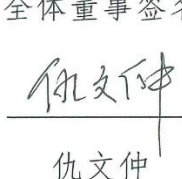 全体董事签名
仇文仲
仇文仲